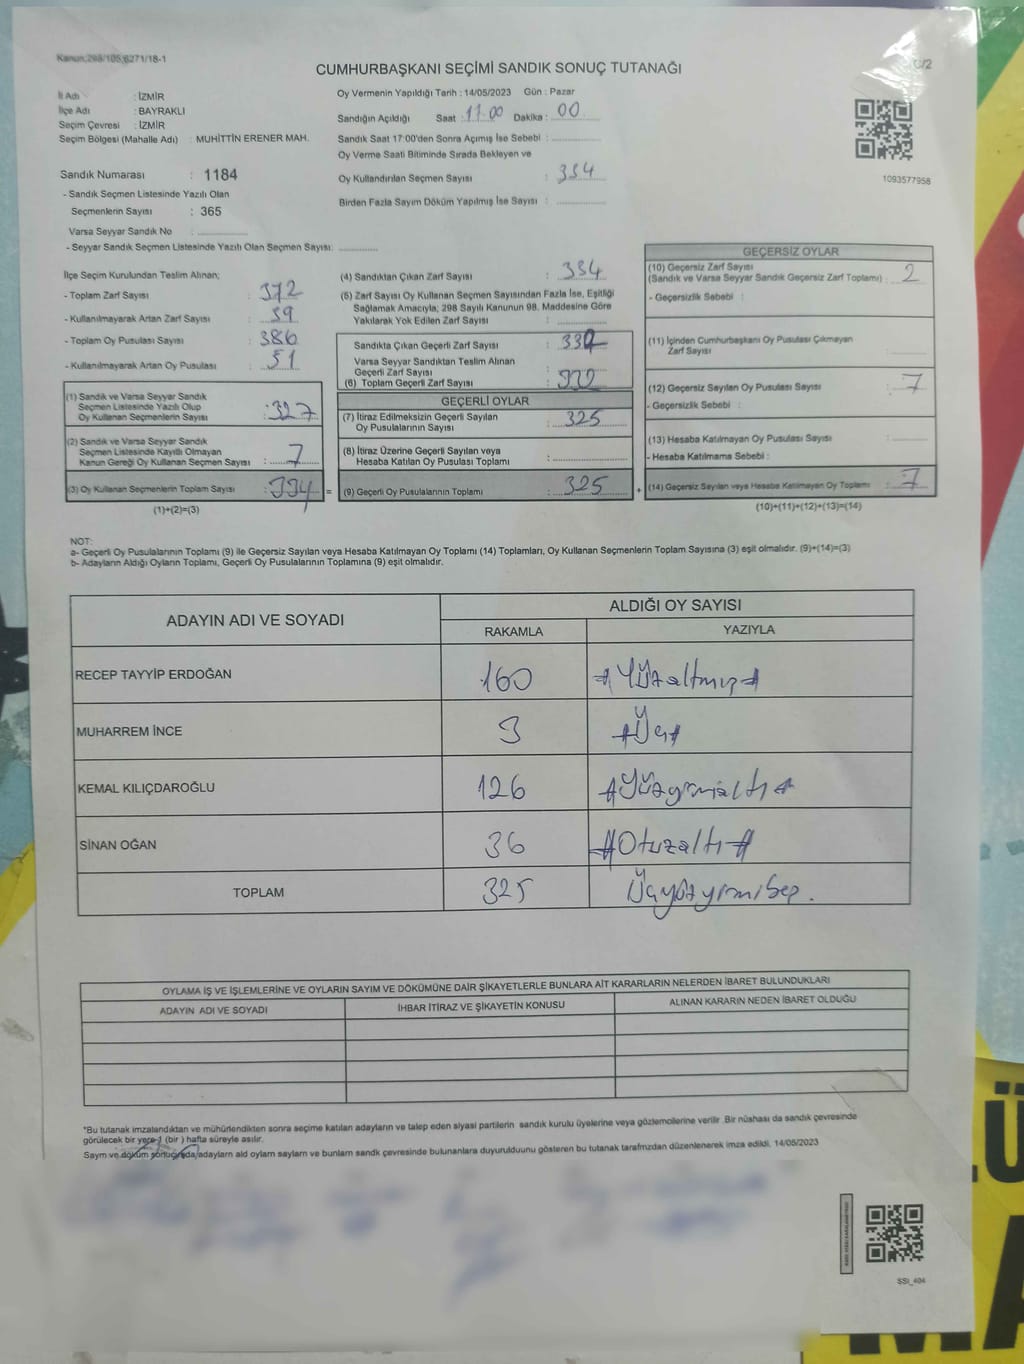 Kanun:298/105;6271/18-1
C/2
CUMHURBAŞKANI SEÇİMİ SANDIK SONUÇ TUTANAĞI
İl Adı : İZMİR
İlçe Adı : BAYRAKLI
Seçim Çevresi : İZMİR
Seçim Bölgesi (Mahalle Adı) : MUHİTTİN ERENER MAH.
Sandık Numarası : 1184
- Sandık Seçmen Listesinde Yazılı Olan
Seçmenlerin Sayısı : 365
Varsa Seyyar Sandık No :
- Seyyar Sandık Seçmen Listesinde Yazılı Olan Seçmen Sayısı:
Oy Vermenin Yapıldığı Tarih : 14/05/2023 Gün : Pazar
Sandığın Açıldığı Saat : 17.00 Dakika : 00
Sandık Saat 17:00'den Sonra Açımış İse Sebebi :
Oy Verme Saati Bitiminde Sırada Bekleyen ve
Oy Kullandırılan Seçmen Sayısı : 334
Birden Fazla Sayım Döküm Yapılmış İse Sayısı :
1093577958
İlçe Seçim Kurulundan Teslim Alınan;
- Toplam Zarf Sayısı : 372
- Kullanılmayarak Artan Zarf Sayısı : 39
- Toplam Oy Pusulası Sayısı : 386
- Kullanılmayarak Artan Oy Pusulası : 51
(1) Sandık ve Varsa Seyyar Sandık
Seçmen Listesinde Yazılı Olup
Oy Kullanan Seçmenlerin Sayısı : 327
(2) Sandık ve Varsa Seyyar Sandık
Seçmen Listesinde Kayıtlı Olmayan
Kanun Gereği Oy Kullanan Seçmen Sayısı : 7
(3) Oy Kullanan Seçmenlerin Toplam Sayısı : 334 =
(1)+(2)=(3)
(4) Sandıktan Çıkan Zarf Sayısı : 334
(5) Zarf Sayısı Oy Kullanan Seçmen Sayısından Fazla İse, Eşitliği
Sağlamak Amacıyla; 298 Sayılı Kanunun 98. Maddesine Göre
Yakılarak Yok Edilen Zarf Sayısı :
Sandıkta Çıkan Geçerli Zarf Sayısı :
Varsa Seyyar Sandıktan Teslim Alınan
Geçerli Zarf Sayısı
(6) Toplam Geçerli Zarf Sayısı :
GEÇERLİ OYLAR
(7) İtiraz Edilmeksizin Geçerli Sayılan
Oy Pusulalarının Sayısı : 325
(8) İtiraz Üzerine Geçerli Sayılan veya
Hesaba Katılan Oy Pusulası Toplamı :
(9) Geçerli Oy Pusulalarının Toplamı : 325 +
GEÇERSİZ OYLAR
(10) Geçersiz Zarf Sayısı
(Sandık ve Varsa Seyyar Sandık Geçersiz Zarf Toplamı) : 2
- Geçersizlik Sebebi :
(11) İçinden Cumhurbaşkanı Oy Pusulası Çıkmayan
Zarf Sayısı :
(12) Geçersiz Sayılan Oy Pusulası Sayısı : 7
- Geçersizlik Sebebi :
(13) Hesaba Katılmayan Oy Pusulası Sayısı :
- Hesaba Katılmama Sebebi :
(14) Geçersiz Sayılan veya Hesaba Katılmayan Oy Toplamı : 7
(10)+(11)+(12)+(13)=(14)
NOT:
a- Geçerli Oy Pusulalarının Toplamı (9) ile Geçersiz Sayılan veya Hesaba Katılmayan Oy Toplamı (14) Toplamları, Oy Kullanan Seçmenlerin Toplam Sayısına (3) eşit olmalıdır. (9)+(14)=(3)
b- Adayların Aldığı Oyların Toplamı, Geçerli Oy Pusulalarının Toplamına (9) eşit olmalıdır.
ADAYIN ADI VE SOYADI
ALDIĞI OY SAYISI
RAKAMLA YAZIYLA
RECEP TAYYİP ERDOĞAN 160 #Yüzaltmış#
MUHARREM İNCE 3 #Üç#
KEMAL KILIÇDAROĞLU 126 #Yüzyirmialtı#
SİNAN OĞAN 36 #Otuzaltı#
TOPLAM 325 Üçyüzyirmibeş.
OYLAMA İŞ VE İŞLEMLERİNE VE OYLARIN SAYIM VE DÖKÜMÜNE DAİR ŞİKAYETLERLE BUNLARA AİT KARARLARIN NELERDEN İBARET BULUNDUKLARI
ADAYIN ADI VE SOYADI İHBAR İTİRAZ VE ŞİKAYETİN KONUSU ALINAN KARARIN NEDEN İBARET OLDUĞU
*Bu tutanak imzalandıktan ve mühürlendikten sonra seçime katılan adayların ve talep eden siyasi partilerin sandık kurulu üyelerine veya gözlemcilerine verilir .Bir nüshası da sandık çevresinde
görülecek bir yere 1 (bir ) hafta süreyle asılır.
Saym ve döküm sonucında, adayların ald oylam sayların ve bunlarn sandk çevresinde bulunanlara duyurulduunu gösteren bu tutanak tarafmzdan düzenlenerek imza edildi. 14/05/2023
SSI_404